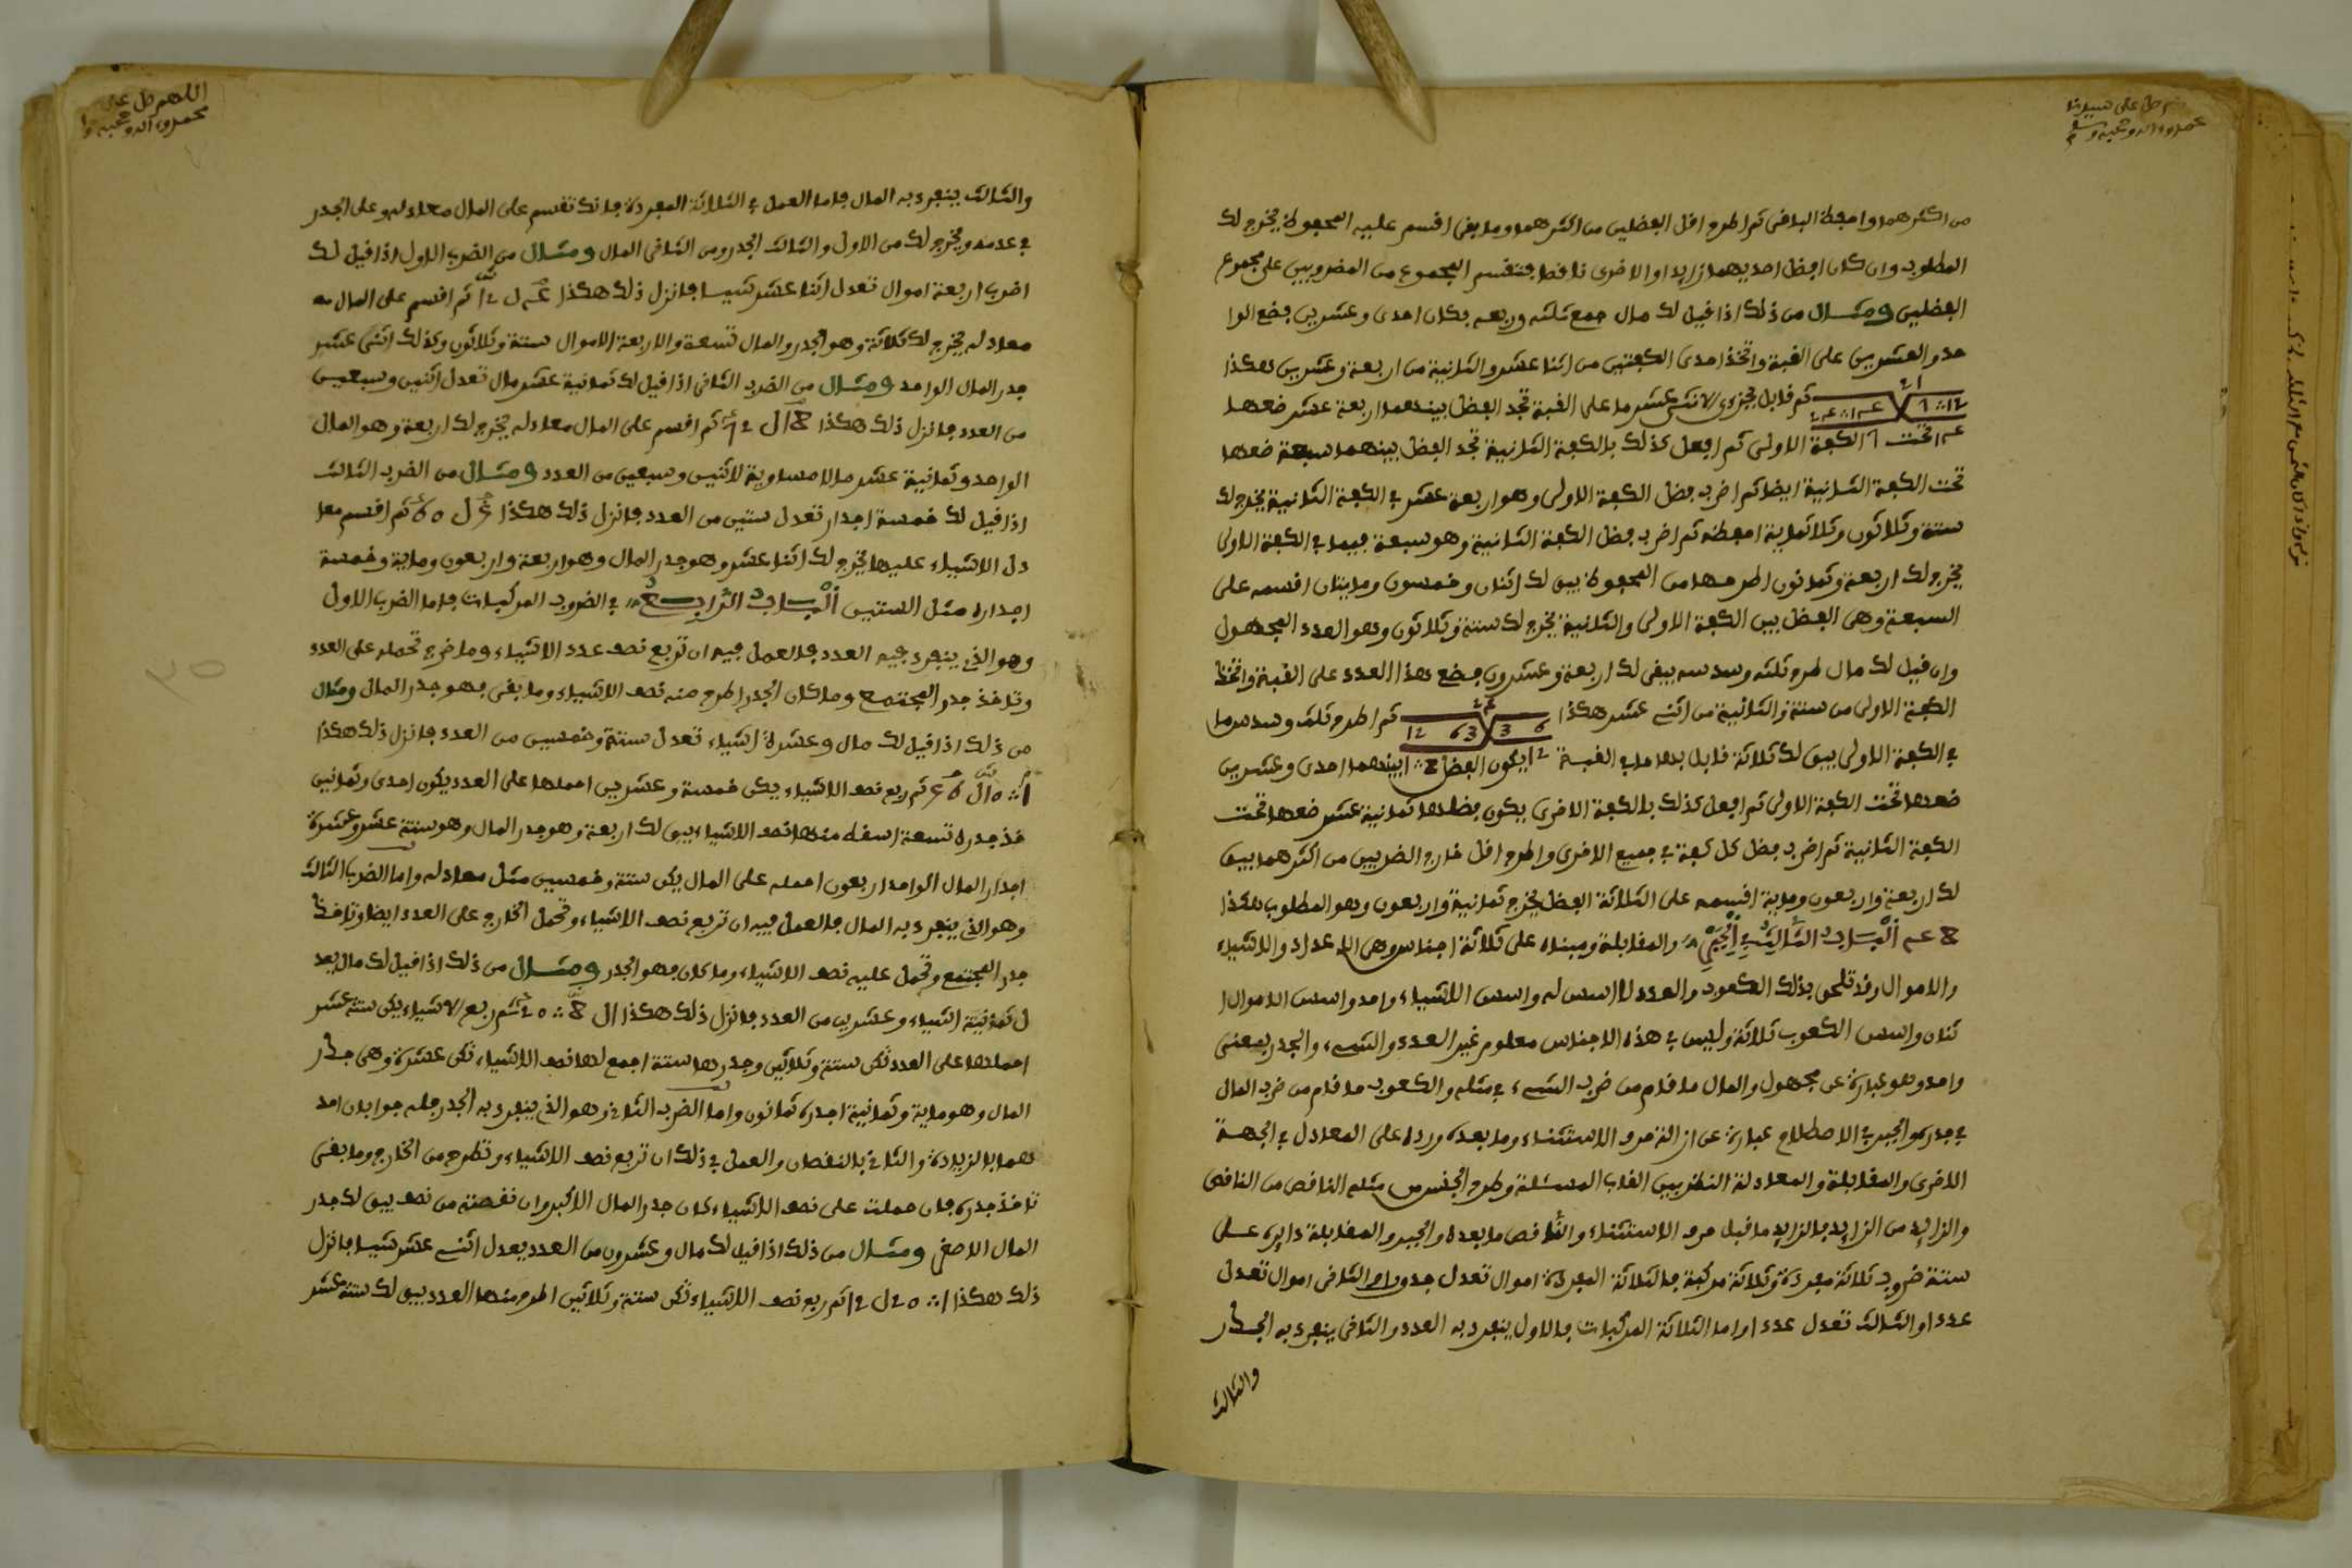 صل على سيدنا
محمد واله وصحبه وسلم
من اكثرهما واحفظ الباقى ثم اطرح اقل الفضلين من اكثرهما وما بقى اقسم عليه المحفوظ يخرج لك
المطلوب وان كان احفظ احديهما زايدا والاخرى ناقصا فتقسم المجموع من المضروبين على مجموع
الفضلين ومثال من ذلك اذا قيل لك مال جمع ثلثه وربعه بكان احدى وعشرين فضع الوا
حد والعشرين على القبة واتخذ احدى الكفتين من اثنا عشر والثانية من اربعة وعشرين هكذا
ثم قابل بجزءى الاثنى عشر ما على القبة تجد الفضل بينهما اربعة عشر ضعها
تحت الكفة الاولى ثم افعل كذلك بالكفة الثانية تجد الفضل بينهما سبعة ضعها
تحت الكفة الثانية ايضا ثم اضرب فضل الكفة الاولى وهو اربعة عشر في الكفة الثانية يخرج لك
ستة وثلاثون وثلاثماية احفظه ثم اضرب فضل الكفة الثانية وهو سبعة فيما في الكفة الاولى
يخرج لك اربعة وثمانون اطرحها من المحفوظ يبق لك اثنان وخمسون ومايتان اقسمه على
السبعة وهى الفضل بين الكفة الاولى والثانية يخرج لك ستة وثلاثون وهو العدد المجهول
وان قيل لك مال طرح ثلثه وسدسه يبقى لك اربعة وعشرون فضع هذا العدد على القبة واتخذ
الكفة الاولى من ستة والثانية من اثنى عشر هكذا ثم اطرح ثلث وسدس ما
في الكفة الاولى يبق لك ثلاثة قابل بها ما في القبة يكون الفضل بينهما احدى وعشرين
ضعها تحت الكفة الاولى ثم افعل كذلك بالكفة الاخرى يكون فضلها ثمانية عشر ضعها تحت
الكفة الثانية ثم اضرب فضل كل كفة في جميع الاخرى واطرح اقل خارج الضربين من اكثرهما يبق
لك اربعة واربعون وماية اقسمه على الثلاثة الفضل يخرج ثمانية واربعون وهو المطلوب هكذا
الباب الثالث في الجبر والمقابلة ومبناه على ثلاثة اجناس وهى الاعداد والاشياء
والاموال وقد تلحق بذلك الكعوب والعدد لا اسس له واسس الاشياء واحد واسس الاموال ا
ثنان واسس الكعوب ثلاثة وليس في هذه الاجناس معلوم غير العدد والشىء والجدر بمعنى
واحد وهو عبارة عن مجهول والمال ما قام من ضرب الشىء في مثله والكعوب ما قام من ضرب المال
في جدره والجبر في الاصطلاح عبارة عن ازالة حرو الاستثناء وما بعده ورده على المعادل في الجهة
الاخرى والمقابلة والمعادلة النظر بين القاب المسئلة وطرح الجنس من مثله الناقص من الناقص
والزايد من الزايد فالزايد ما قبل حرو الاستثناء والناقص ما بعده والجبر والمقابلة داير على
ستة ضروب ثلاثة مفردة وثلاثة مركبة فالثلاثة المفردة اموال تعدل جدورا والثانى اموال تعدل
عددا والثالث تعدل عددا واما الثلاثة المركبات فالاول ينفرد به العدد والثانى ينفرد به الجدر
والثالث
اللهم صل على
محمد واله وصحبه
والثالث ينفرد به المال فاما العمل في الثلاثة المفردة فانك تقسم على المال معادله وعلى الجدر
في عدمه ويخرج لك من الاول والثالث الجدر ومن الثانى المال ومثال من الضرب الاول اذا قيل لك
اضرب اربعة اموال تعدل اثنا عشر شيا فانزل ذلك هكذا ثم اقسم على المال
معادله يخرج لك ثلاثة وهو الجدر والمال تسعة والاربعة الاموال ستة وثلاثون وكذلك اثنى عشر
جدر المال الواحد ومثال من الضرب الثانى اذا قيل لك ثمانية عشر مال تعدل اثنين وسبعين
من العدد فانزل ذلك هكذا ثم اقسم على المال معادله يخرج لك اربعة وهو المال
الواحد وثمانية عشر مالا مساوية لاثنين وسبعين من العدد ومثال من الضرب الثالث
اذا قيل لك خمسة اجدار تعدل ستين من العدد فانزل ذلك هكذا ثم اقسم معا
دل الاشياء عليها يخرج لك اثنا عشر وهو جدر المال وهو اربعة واربعون وماية وخمسة
اجداره مثل الستين الباب الرابع في الضروب المركبات فاما الضرب الاول
وهو الذي ينفرد فيه العدد فالعمل فيه ان تربع نصف عدد الاشياء وما خرج تحمله على العدد
وتاخذ جدر المجتمع وما كان الجدر اطرح منه نصف الاشياء وما بقى فهو جدر المال ومثال
من ذلك اذا قيل لك مال وعشرة اشياء تعدل ستة وخمسين من العدد فانزل ذلك هكذا
ثم ربع نصف الاشياء يكن خمسة وعشرين احملها على العدد يكون احدى وثمانين
خذ جدره تسعة اسقط منها نصف الاشياء يبق لك اربعة وهو جدر المال وهو ستة عشر وعشرة
اجدار المال الواحد اربعون احمله على المال يكن ستة وخمسين مثل معادله واما الضرب الثالث
وهو الذي ينفرد به المال فالعمل فيه ان تربع نصف الاشياء وتحمل الخارج على العدد ايضا وتاخذ
جدر المجتمع وتحمل عليه نصف الاشياء وما كان فهو الجدر ومثال من ذلك اذا قيل لك مال يعد
ل ثمانية اشياء وعشرين من العدد فانزل ذلك هكذا ثم ربع الاشياء يكن ستة عشر
احملها على العدد تكن ستة وثلاثين وجدرها ستة اجمع لها نصف الاشياء تكن عشرة وهى جدر
المال وهو ماية وثمانية اجدره ثمانون واما الضرب الثانى وهو الذي ينفرد به الجدر فله جوابان احد
هما بالزيادة والثانى بالنقصان والعمل في ذلك ان تربع نصف الاشياء وتطرح من الخارج وما بقى
تاخذ جدره فان حملت على نصف الاشياء كان جدر المال الاكبر وان نقصته من نصف يبق لك جدر
المال الاصغر ومثال من ذلك اذا قيل لك مال وعشرون من العدد يعدل اثنى عشر شيا فانزل
ذلك هكذا ثم ربع نصف الاشياء تكن ستة وثلاثين اطرح منها العدد يبق لك ستة عشر